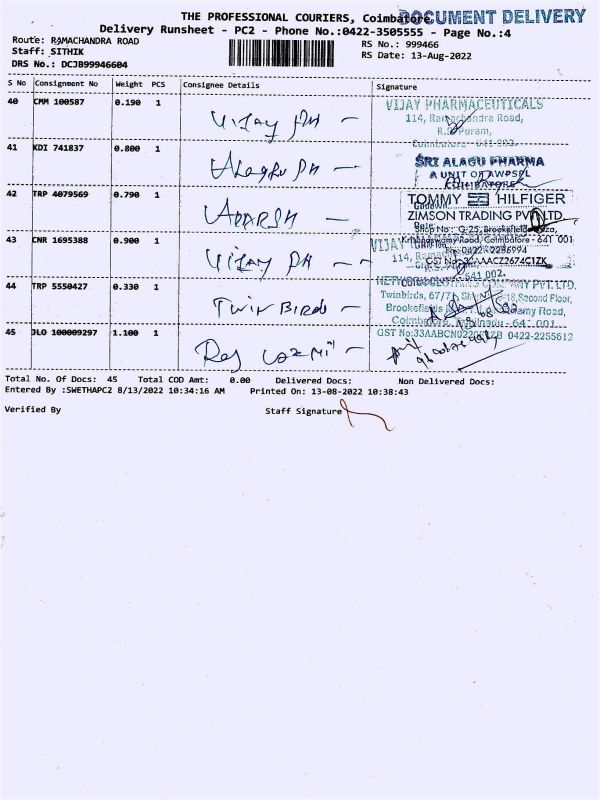 DOCUMENT DELIVERY
THE PROFESSIONAL COURIERS, Coimbatore.
Delivery Runsheet - PC2 - Phone No.:0422-3505555 - Page No.:4
Route: RAMACHANDRA ROAD
RS No.: 999466
Staff: SITHIK
RS Date: 13-Aug-2022
DRS No.: DCJB99946604
S No Consignment No Weight PCS Consignee Details Signature
40 CMM 100587 0.190 1 Vijay PH
VIJAY PHARMACEUTICALS
114, Ramachandra Road,
R.S. Puram,
Coimbatore - 641 002.
41 KDI 741837 0.800 1 Alagu PH
SRI ALAGU PHARMA
A UNIT OF AWPSPL
COIMBATORE
42 TRP 4079569 0.790 1 ADARSH
TOMMY HILFIGER
ZIMSON TRADING PVT LTD
Shop No : G-25, Brookefield Plaza,
Krishnaswamy Road, Coimbatore - 641 001
Ph : 0422 - 2256994
43 CNR 1695388 0.900 1 Vijay PH
VIJAY
114, Rama
641 002.
44 TRP 5550427 0.330 1 Twin Birds
COMPANY PVT. LTD.
Twinbirds, 67/71 Second Floor,
Brookefields
Coimbatore, Tamilnadu - 641 001
0422-2255612
45 JLO 100009297 1.100 1 Raj Laxmi
Total No. Of Docs: 45 Total COD Amt: 0.00 Delivered Docs: Non Delivered Docs:
Entered By :SWETHAPC2 8/13/2022 10:34:16 AM Printed On: 13-08-2022 10:38:43
Verified By Staff Signature